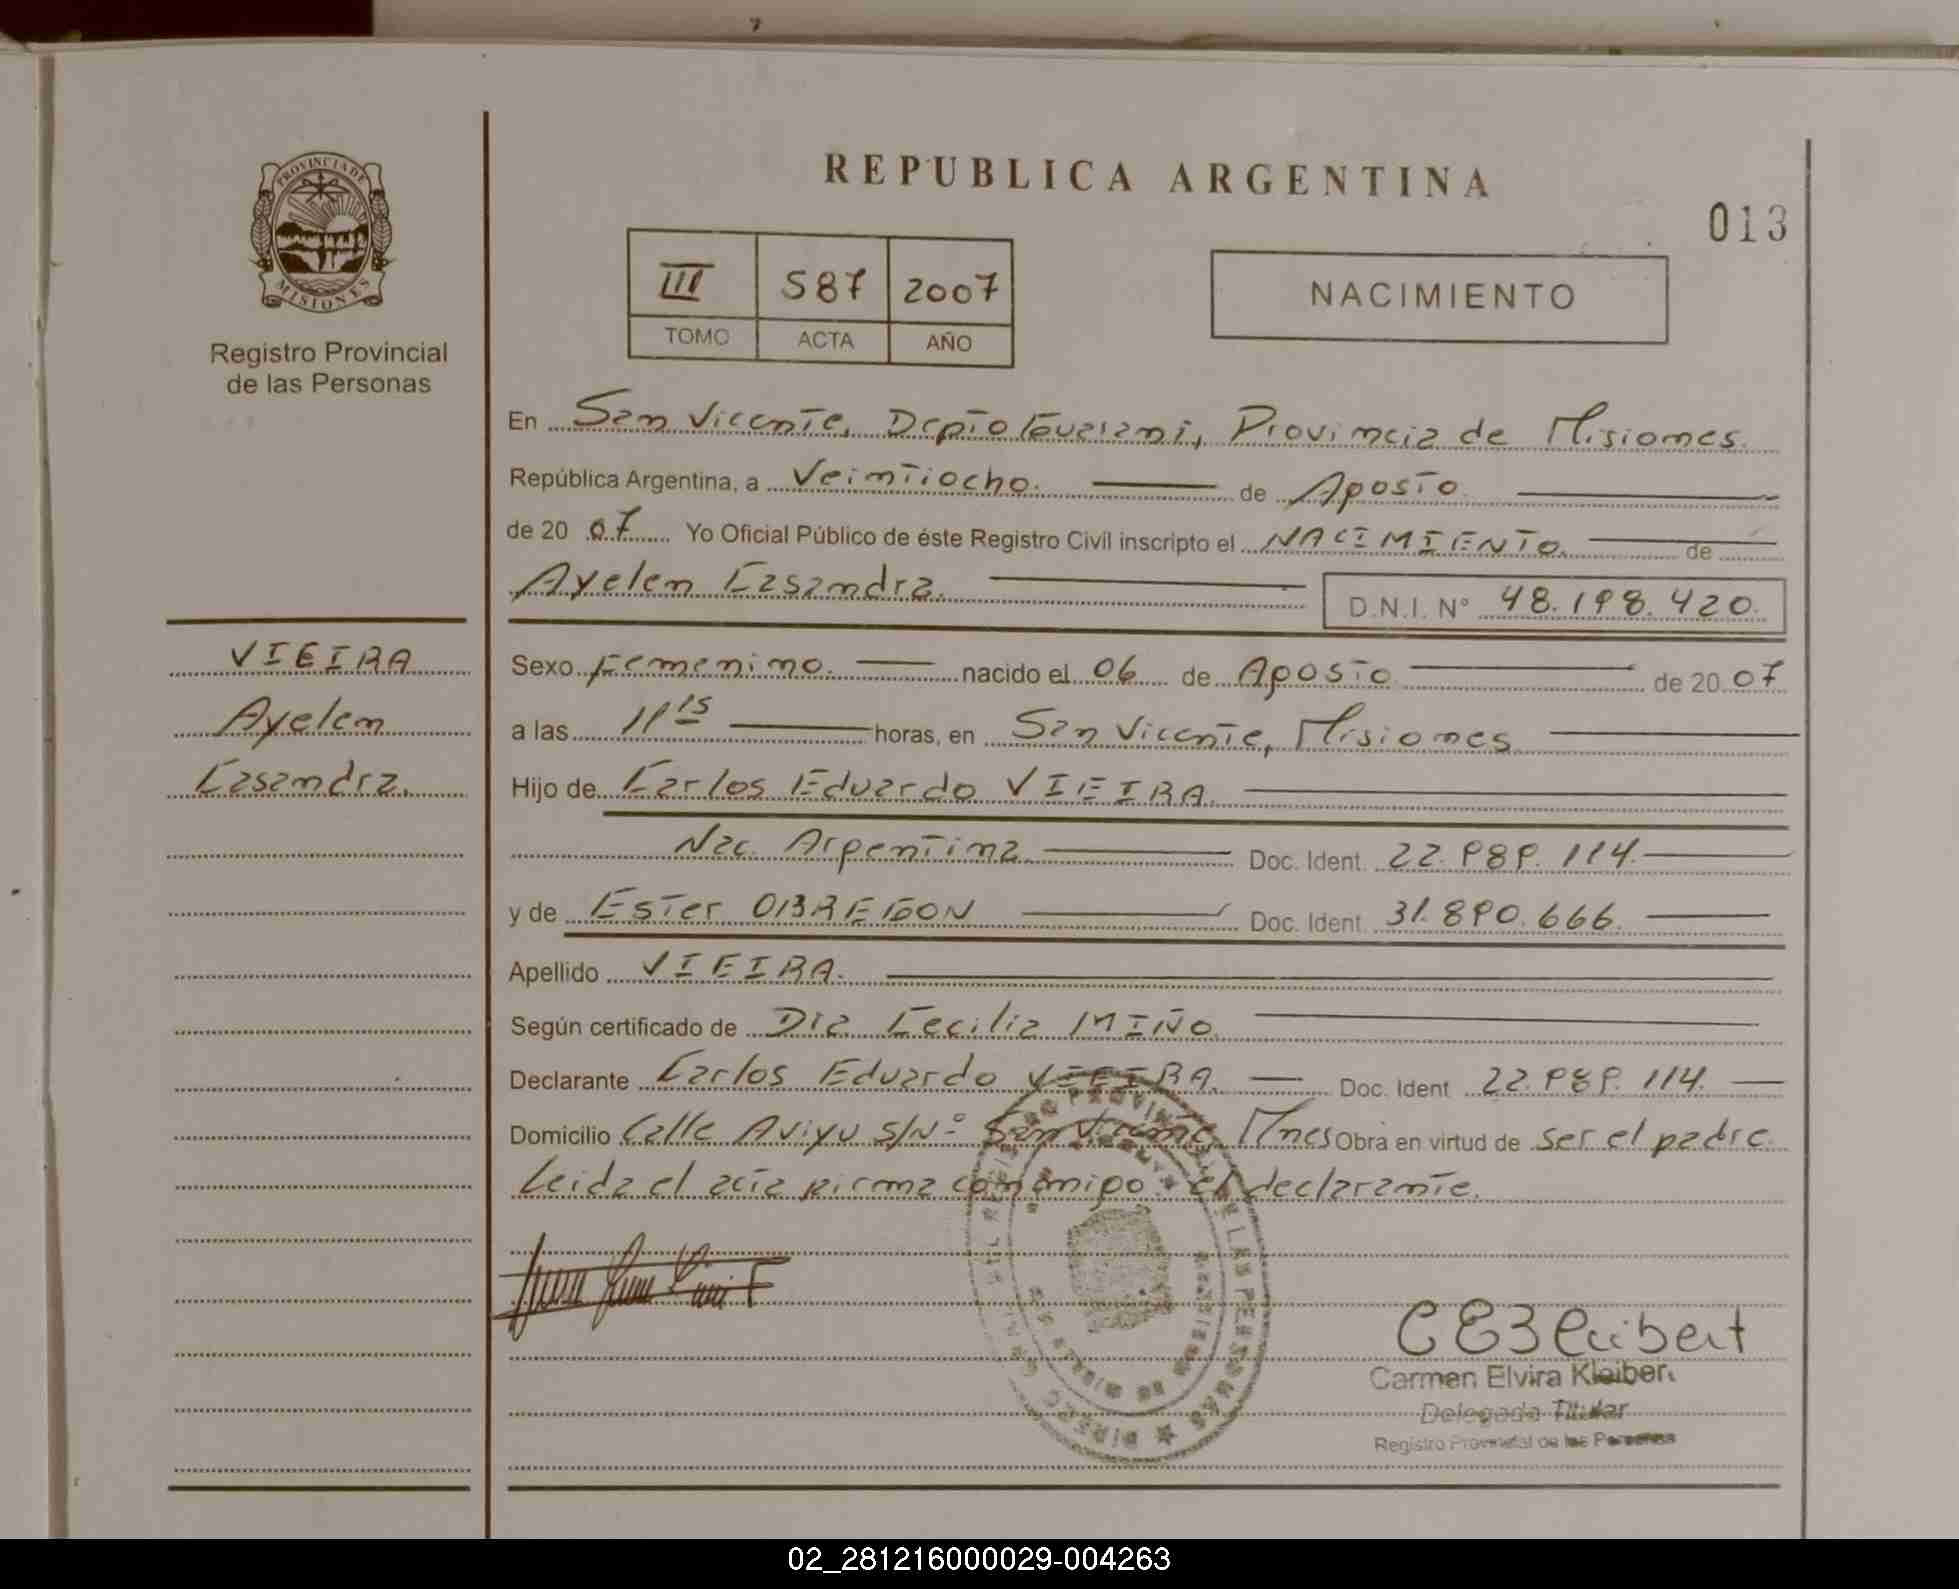 PROVINCIA DE
MISIONES
Registro Provincial
de las Personas
VIEIRA
Ayelen
Casandra.
REPUBLICA ARGENTINA
013
III 587 2007
TOMO ACTA AÑO
NACIMIENTO
En San Vicente, Dcpto Guarani, Provincia de Misiones.
República Argentina, a Veintiocho. de Agosto
de 20 07 Yo Oficial Público de éste Registro Civil inscripto el NACIMIENTO. de
Ayelen Casandra. D.N.I. N° 48.198.420.
Sexo Femenino. nacido el 06 de Agosto de 20 07
a las 11 15 horas, en San Vicente, Misiones
Hijo de Carlos Eduardo VIEIRA.
Nac. Argentina Doc. Ident. 22.989.114.
y de Ester OBREGON Doc. Ident. 31.890.666.
Apellido VIEIRA.
Según certificado de Dra Cecilia MIÑO.
Declarante Carlos Eduardo VIEIRA. Doc. Ident 22.989.114.
Domicilio Calle Aviyu S/Nº San Vicente, Mnes Obra en virtud de ser el padre.
Leida el acta firma conmigo el declarante.
Carmen Elvira Kleiber
Delegada Titular
Registro Provincial de las Personas
02_281216000029-004263